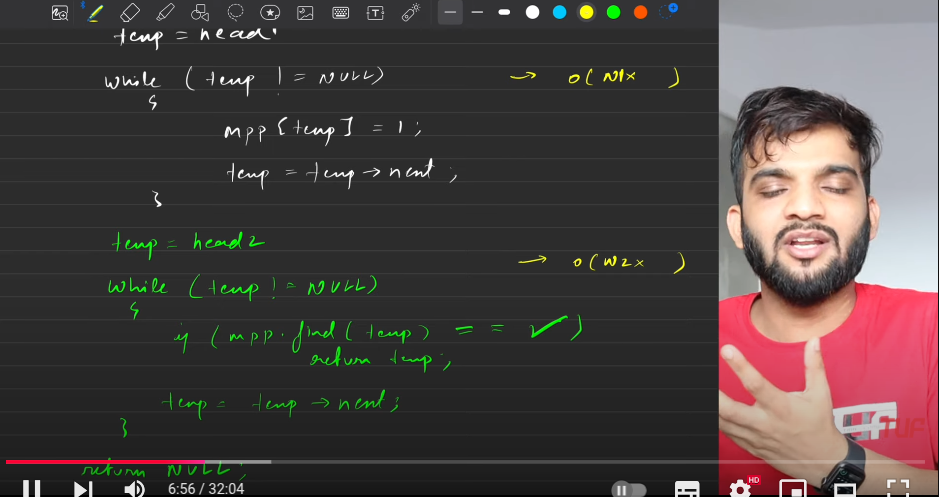 temp = head1
while (temp != NULL) → O(N1x )
{
mpp[temp] = 1;
temp = temp → next;
}
temp = head2
while (temp != NULL) → O(N2x )
{
if (mpp.find(temp) == ✓)
return temp;
temp = temp → next;
}
return NULL;
TUF
6:56 / 32:04
HD